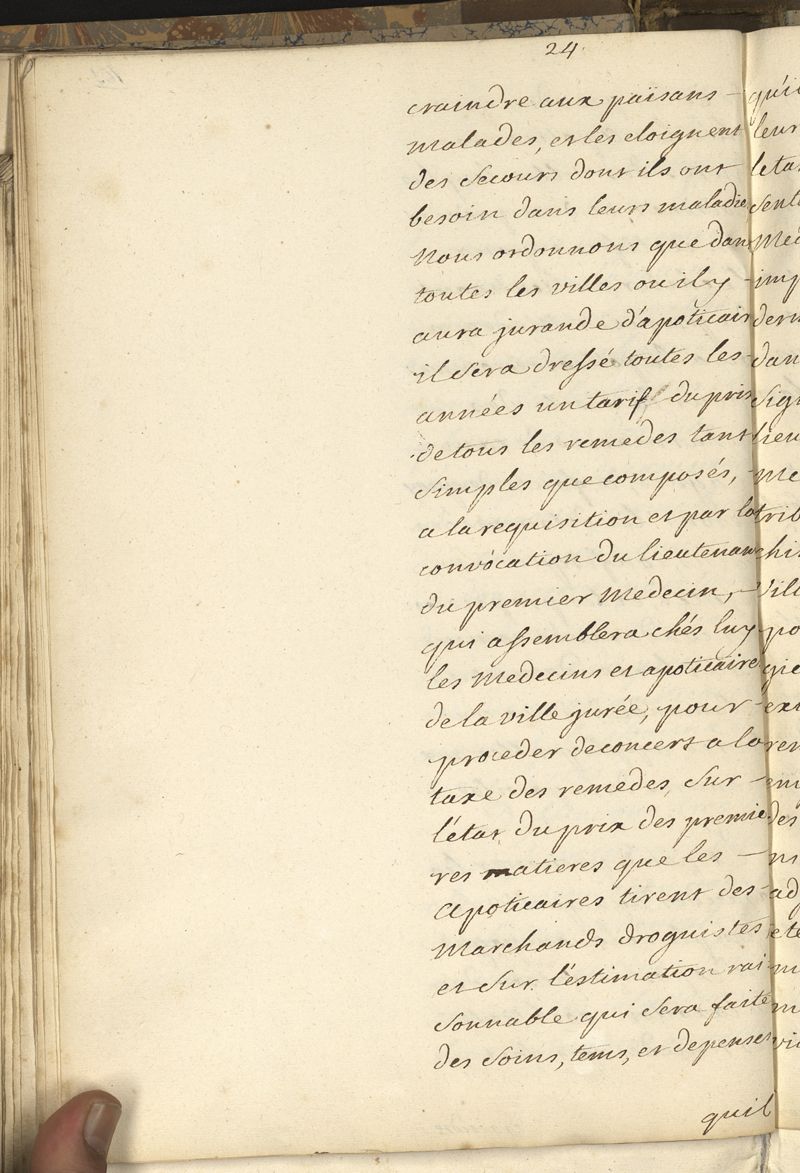 24.
craindre aux païsans –
malades, et les eloignent
des Secours dont ils ont
besoin dans leurs maladie
Nous ordonnons que dan
toutes les villes ou il y –
aura jurande d'apoticair
il Sera dressé toutes les –
années un tarif du pris
de tous les remédes tant
Simples que composés, –
a la requisition et par la
convocation du lieutenan
du premier Medecin, –
qui assemblera chés luy
les Medecins et apoticaire
de la ville jurée, pour –
proceder de concert a la
taxe des remedes, Sur –
l'état du prix des premie
res matieres que les –
Apoticaires tirent des –
Marchands droguistes
et Sur l'estimation rai
sonnable qui Sera faite
des Soins, tems, et depenses
quil